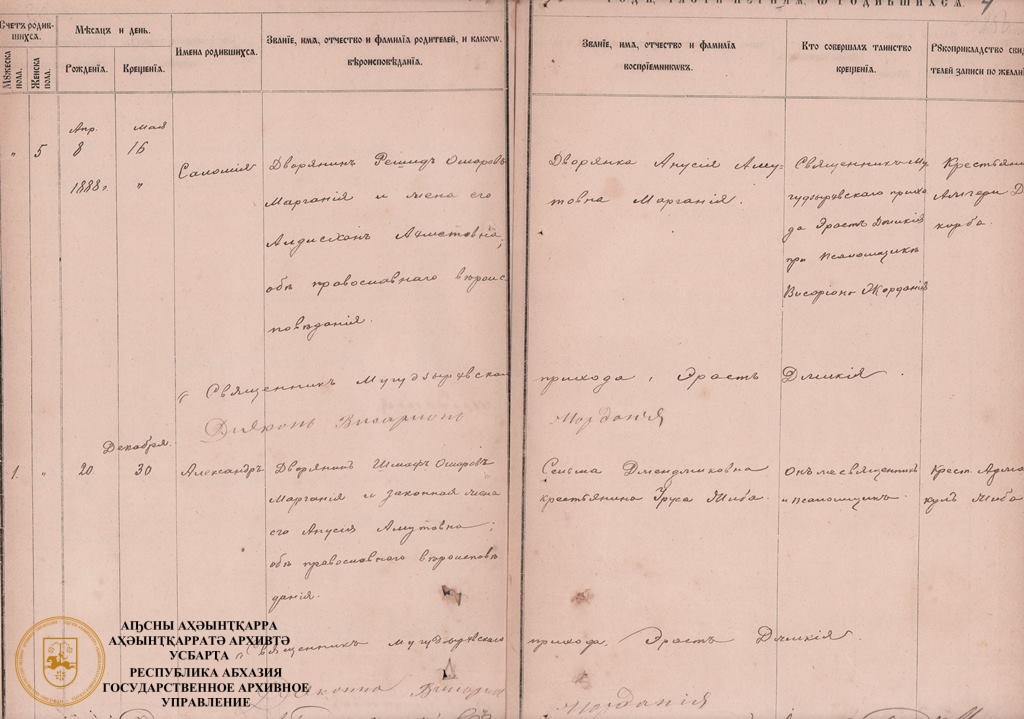 РОДЪ, ЧАСТИ ПЕРВАЯ, Ѡ РОДИВШИХСѦ. 4
Счетъ родив-
шихсѧ.
Мꙋжеска
пола.
Женска
пола.
Мѣсѧцъ и день.
Рожденїѧ.
Крещенїѧ.
Имена родившихсѧ.
Званїе, имѧ, отчество и фамилїѧ родителей, и какогѡ.
вѣроисповѣданїѧ.
Званїе, имѧ, отчество и фамилїѧ
воспрїемникѡвъ.
Кто совершалъ таинство
крещенїѧ.
Рꙋкоприкладство свид
телей записи по желанї
Апр. Мая
" 5 8 16
1888 г. "
Саломія
Дворянинъ Решидъ Ошоровъ
Марганія и жена его
Алдисханъ Ахметовна;
объ православнаго вѣроис
повѣданія.
Дворянка Анусія Аму-
товна Марганія.
Священникъ Му
гудзырхскаго прихо
да Эрастъ Дмикія
при псаломщикѣ
Висаріонъ Жорданія
Крестьяни
Алигери Д
карба.
Священникъ Мугудзырхскаго прихода, Эрастъ Дмикія.
Діяконъ Висаріонъ Жорданія
Декабря.
1. " 20 30
Александръ
Дворянинъ Шмафъ Ошоровъ
Марганія и законная жена
его Анусія Амутовна;
объ православнаго вѣроиспов
данія.
крестьянина Труса Жиба.
онъ же священник
и псаломщикъ.
Крест.
кулъ Жиба
Священникъ прихода, Эрастъ Дмикія.
Висаріо Жорданія
АԤСНЫ АҲӘЫНҬҚАРРА
АҲӘЫНҬҚАРРАТӘ АРХИВТӘ
УСБАРҬА
РЕСПУБЛИКА АБХАЗИЯ
ГОСУДАРСТВЕННОЕ АРХИВНОЕ
УПРАВЛЕНИЕ